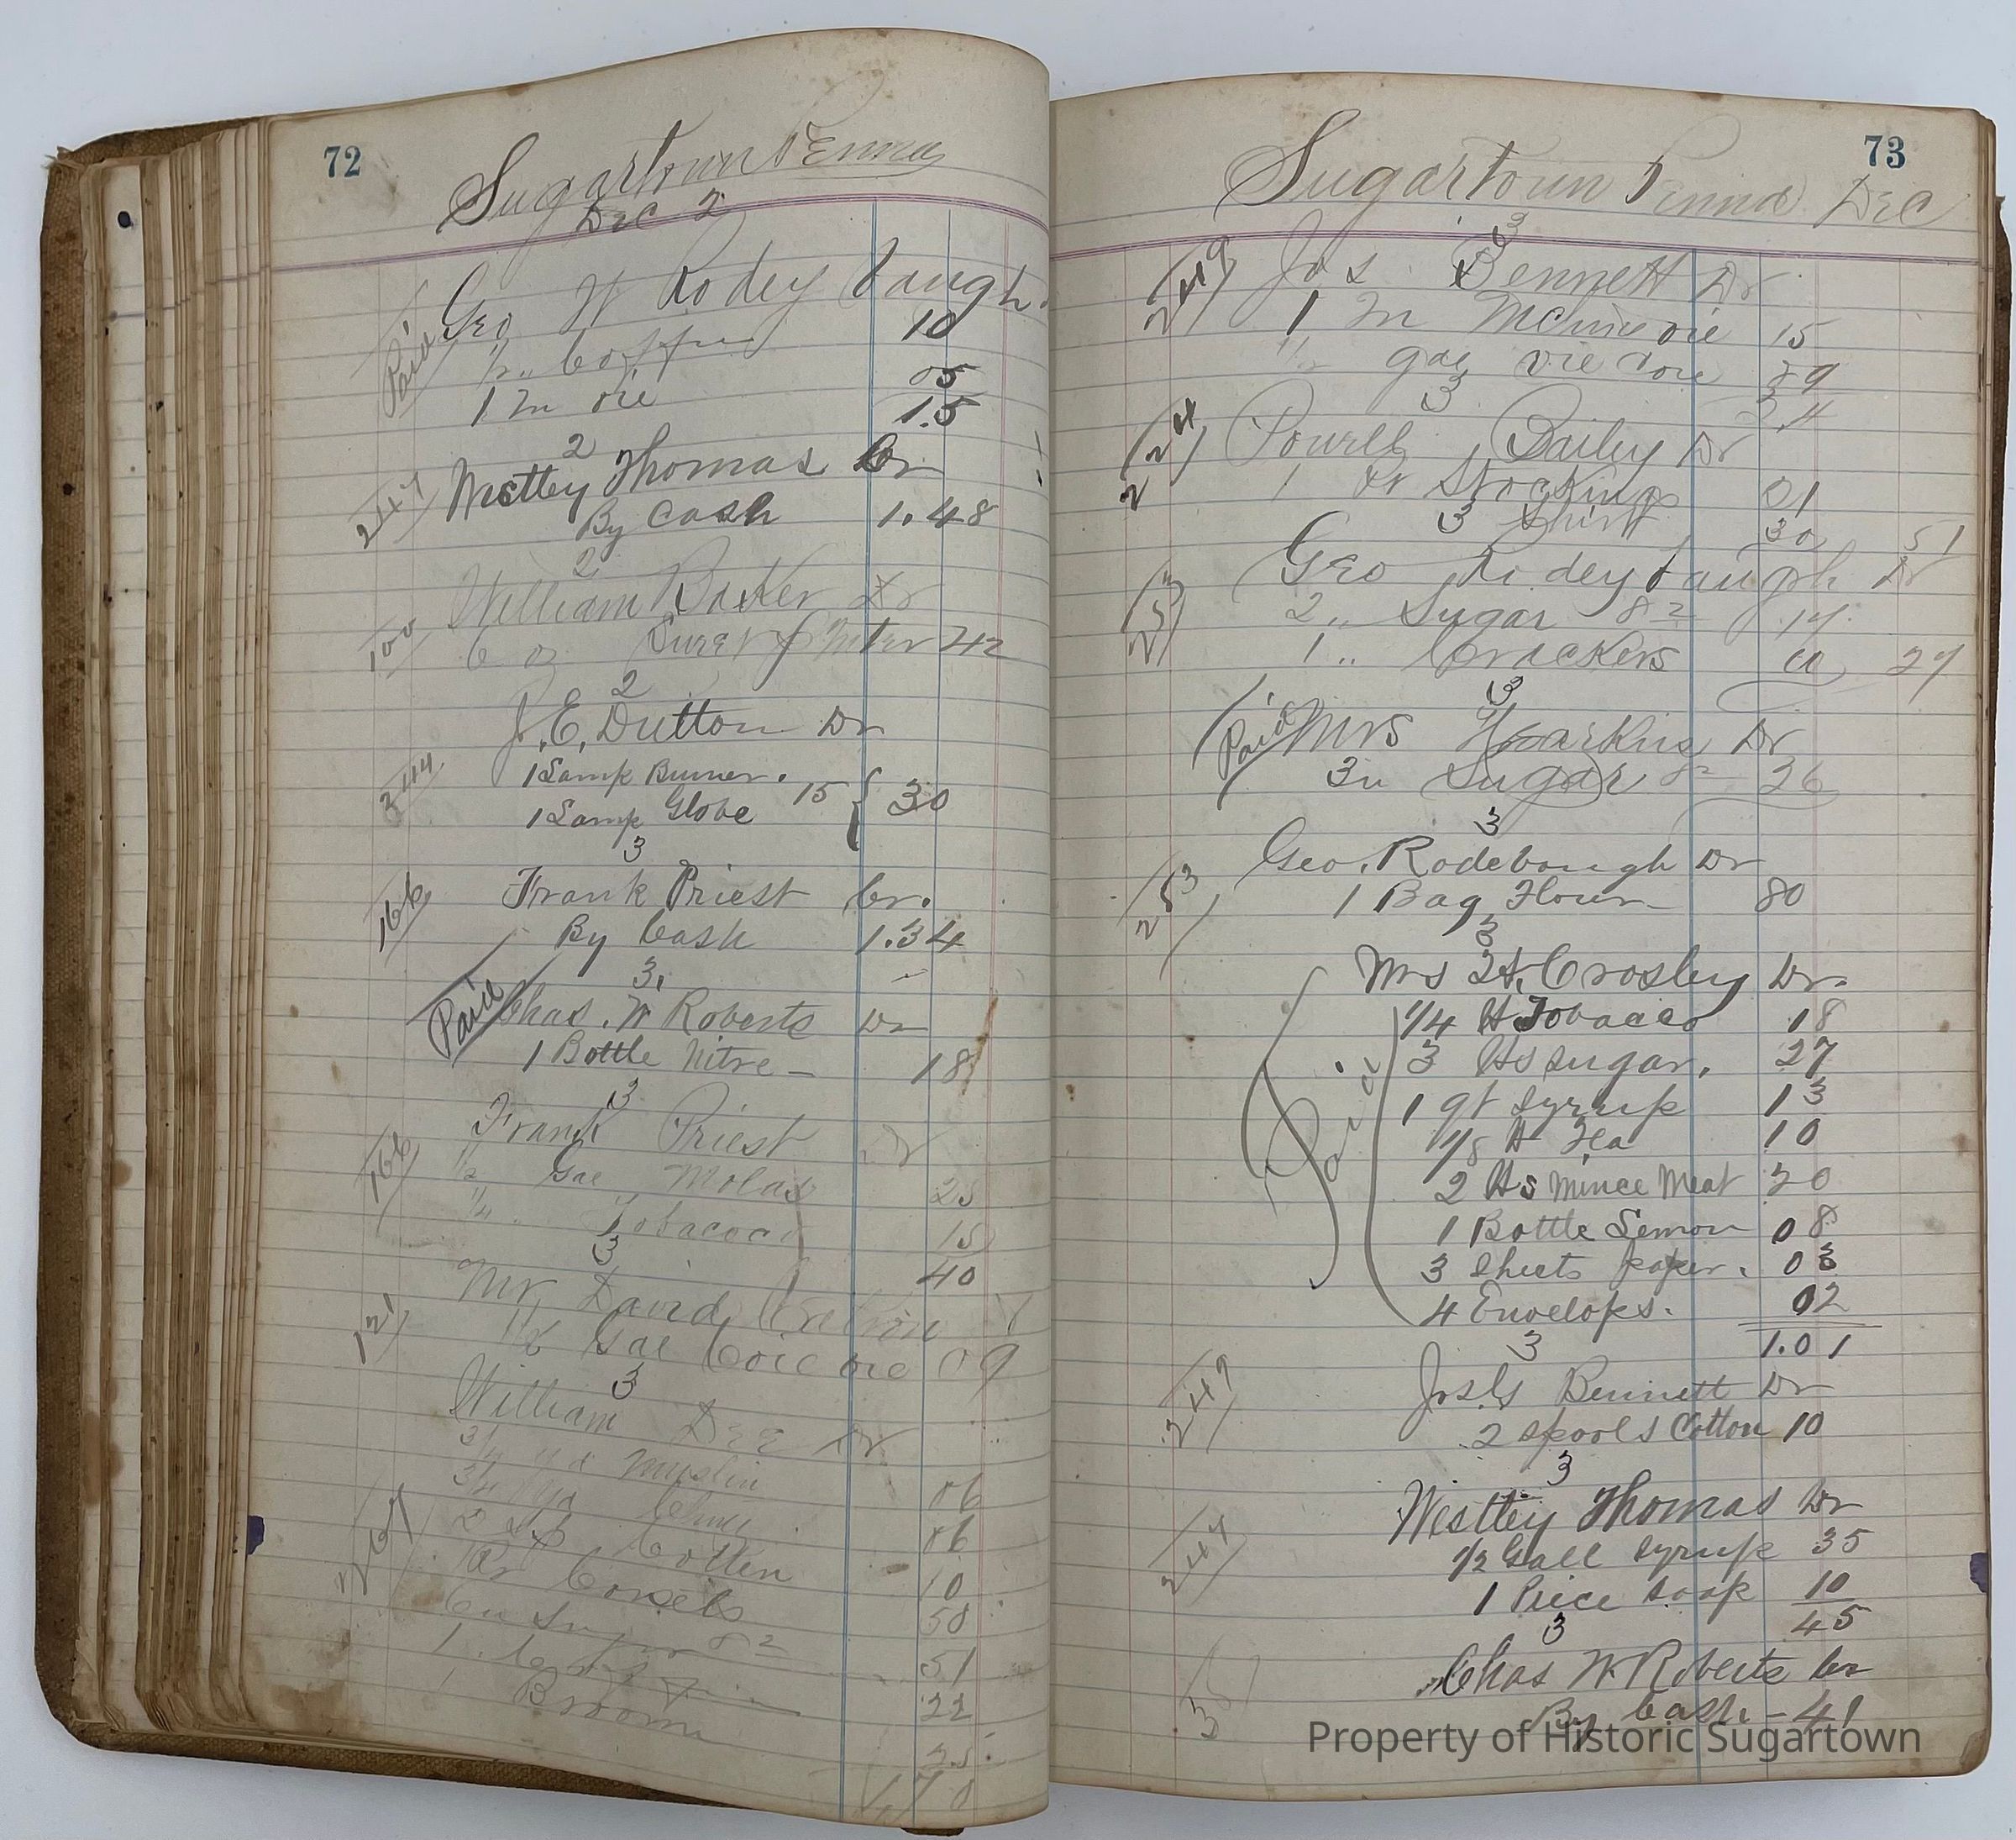 72
Sugartown Penna
Dec 2
Geo W Rodey baugh
Paid
1/2 " Coffee 10
1 In oil 05
15
2
Westley Thomas Cr
247
By Cash 1.48
2
William Baker Dr
100
6 oz 42
2
J. E. Dutton Dr
244
1 Lamp Burner.
1 Lamp Globe 15 { 30
3
Frank Priest Cr.
166
By Cash 1.34
3.
Paid
Chas. W Roberts Dr
1 Bottle Nitre 18
3
Frank Priest Dr
166
1/2 Gal Molas 25
1/4 " Tobacco 15
3 40
Mr David
121
1/2 Gal Coil oil 09
3
William Dee Dr
3/4 yd Muslin 06
3/4 yd 06
267
2 Cotten 10
Pr Corsets 50
6 " Sugar 8 1/2 51
1 22
1 Broom 25
1.70
73
Sugartown Penna Dec
3
Jos. Bennett Dr
249
1 In Mchine oil 15
1/2 gal oil 09
3 24
Powell Bailey Dr
24
1 Pr Stockings 21
3 Shirt 30 51
Geo Rodeybaugh Dr
253
2 " Sugar 8 1/2 17
1 " Crackers 10 27
3
Paid
Mrs Harkins Dr
3 " Sugar 8 1/2 26
3
Geo. Rodebough Dr
253
1 Bag Flour 80
3
Mrs H. Crosley Dr.
Paid
1/4 lb Tobacco 18
3 lbs sugar. 27
1 qt Syrup 13
1/8 lb Tea 10
2 lbs Mince Meat 20
1 Bottle Lemon 08
3 Sheets paper. 03
4 Envelops. 02
3 1.01
Jos. G Bennett Dr
249
2 spools Cotton 10
3
Westley Thomas Dr
247
1/2 Gall Syrup 35
1 Piece soap 10
3 45
Chas W Roberts Cr
By Cash - 41
Property of Historic Sugartown